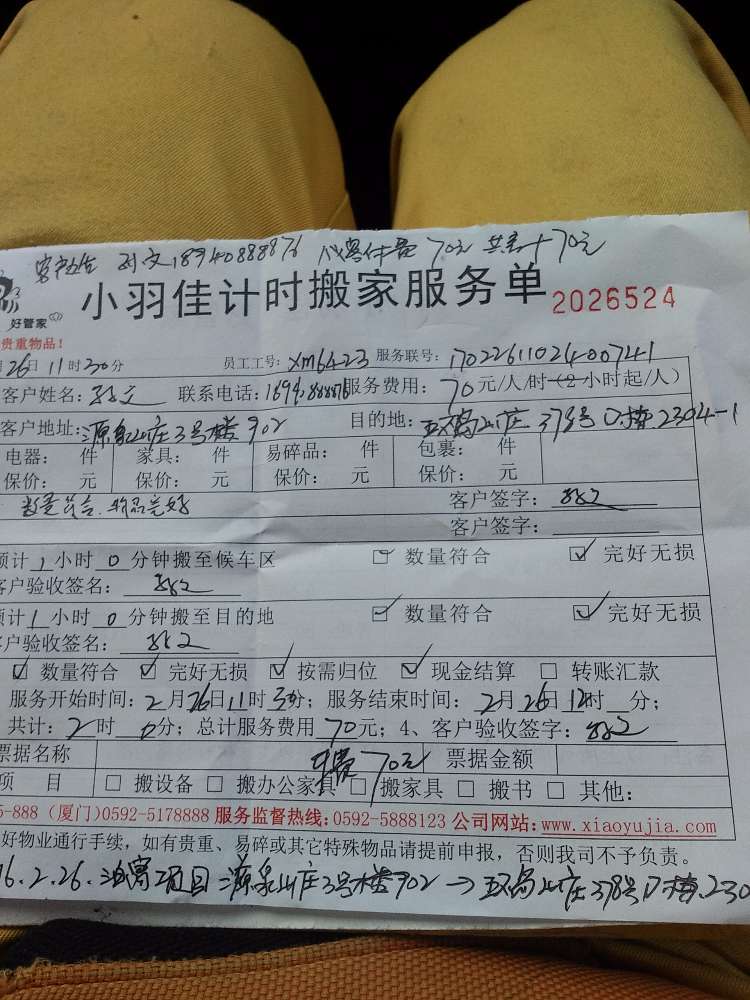 18940888876 70元 70元
小羽佳计时搬家服务单 2026524
好管家
贵重物品!
月26日11时30分 员工工号: xm6423 服务联号: 1702261102400741
客户姓名: 联系电话: 服务费用: 70元/人/时(2小时起/人)
客户地址: 源泉山庄3号楼902 目的地: 山庄378号D栋2304-1
电器: 件 家具: 件 易碎品: 件 包裹: 件
保价: 元 保价: 元 保价: 元 保价: 元
数量符合、物品完好 客户签字:
客户签字:
预计1小时0分钟搬至候车区 数量符合 完好无损
客户验收签名:
预计1小时0分钟搬至目的地 数量符合 完好无损
客户验收签名:
数量符合 完好无损 按需归位 现金结算 转账汇款
服务开始时间: 2月26日11时30分; 服务结束时间: 2月26日12时 分;
共计: 2时0分; 总计服务费用70元; 4、客户验收签字:
票据名称 70元 票据金额
项目 搬设备 搬办公家具 搬家具 搬书 其他:
5-888 (厦门)0592-5178888 服务监督热线:0592-5888123 公司网站:www.xiaoyujia.com
好物业通行手续,如有贵重、易碎或其它特殊物品请提前申报,否则我司不予负责。
16.2.26. 项目 源泉山庄3号楼902 → 山庄378号D栋.230